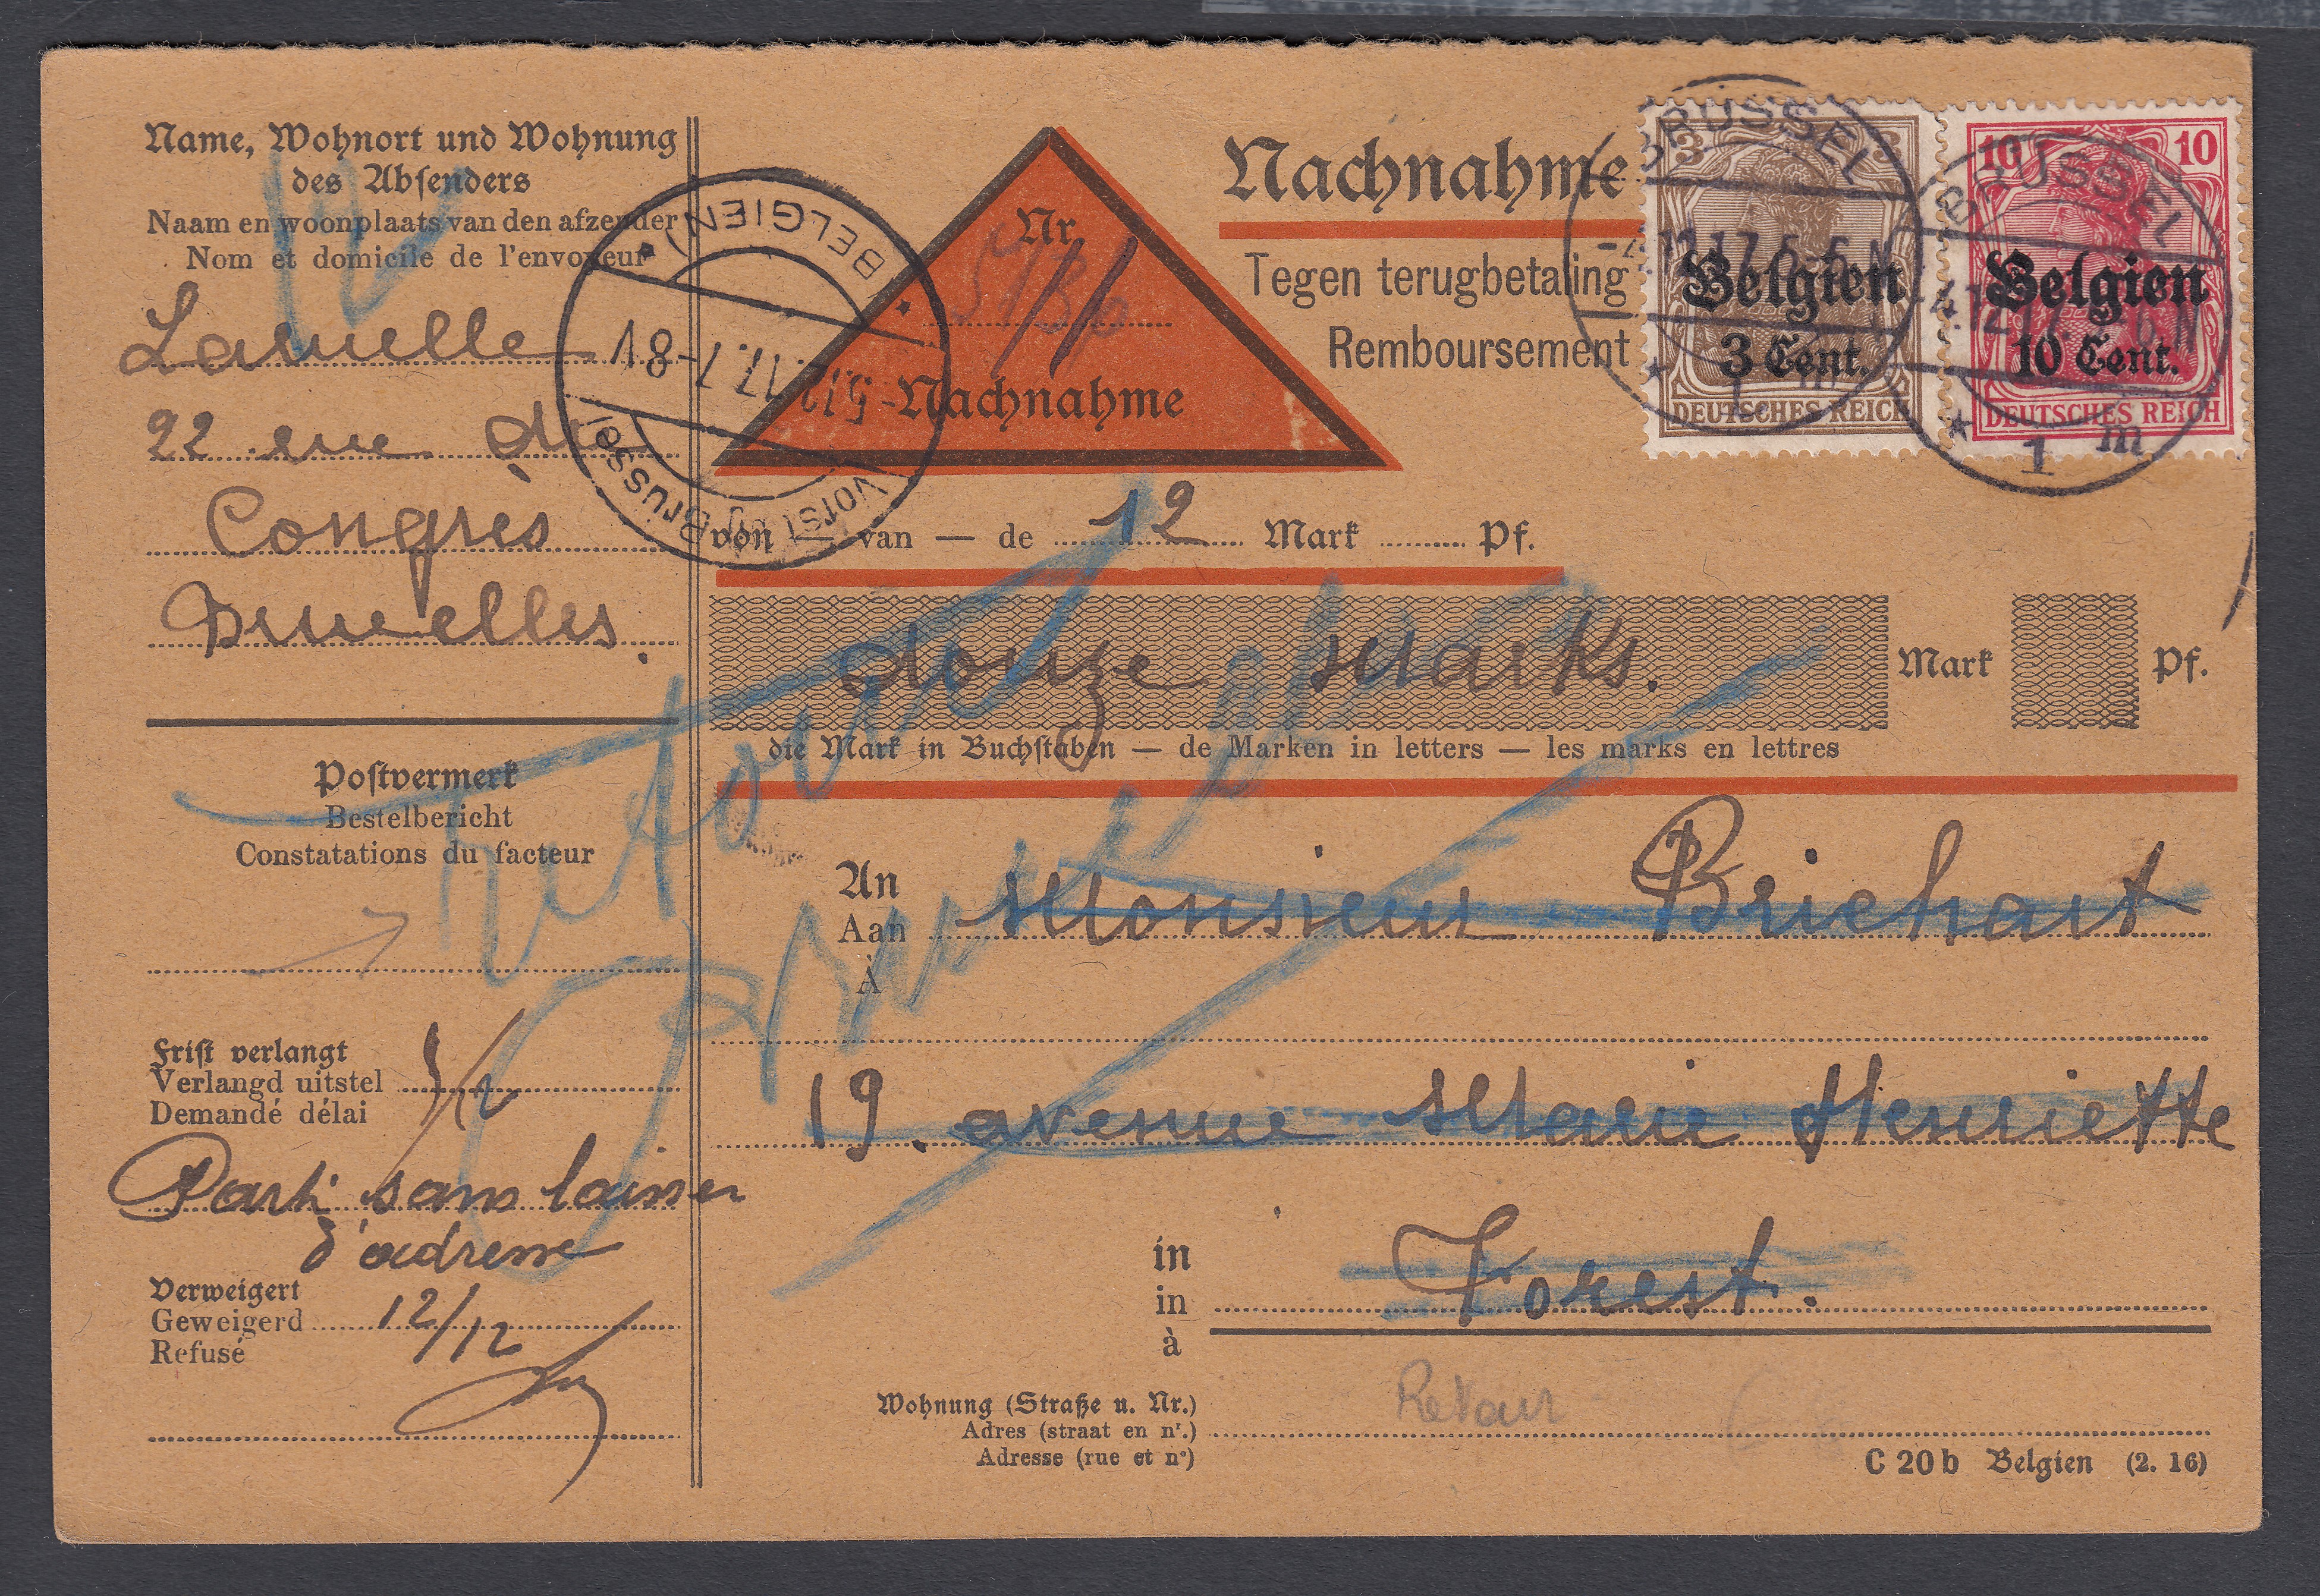 Name, Wohnort und Wohnung
des Absenders
Naam en woonplaats van den afzender
Nom et domicile de l'envoyeur
Lamelle
22 rue du
Congrès
Bruxelles.
Postvermerk
Bestelbericht
Constatations du facteur
Frist verlangt
Verlangd uitstel
Demandé délai
Parti sans laisser
d'adresse
Verweigert
Geweigerd 12/12
Refusé
BELGIEN)
-5.12.17.7-8V
Vorst (Brüssel
Nr.
Nachnahme
Nachnahme
Tegen terugbetaling
Remboursement
BRÜSSEL
-4.12.17.5-6N
1 m
3 3
Belgien
3 Cent.
DEUTSCHES REICH
BRÜSSEL
-4.12.17.5-6N
1 m
10 10
Belgien
10 Cent.
DEUTSCHES REICH
von — van — de 12 Mark Pf.
douze Marks. Mark Pf.
die Mark in Buchstaben — de Marken in letters — les marks en lettres
retour
An
Aan Monsieur Brichart
À
19. avenue Marie Henriette
in
in Forest.
à
Retour
Wohnung (Straße u. Nr.)
Adres (straat en nr.)
Adresse (rue et no)
C 20 b Belgien (2. 16)